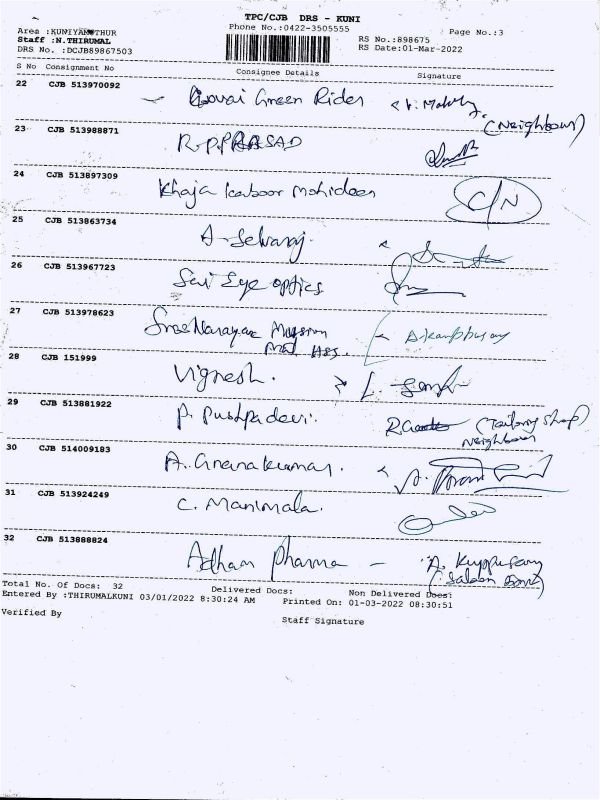 TPC/CJB DRS - KUNI
Phone No.:0422-3505555
Area :KUNIYAMUTHUR
Staff :N.THIRUMAL
DRS No. :DCJB89867503
RS No.:898675
RS Date:01-Mar-2022
Page No.:3
S No Consignment No Consignee Details Signature
22 CJB 513970092 Govai Green Rider (Neighbour)
23 CJB 513988871 R.P.PRASAD
24 CJB 513897309 Khaja kaboor mohideen C/N
25 CJB 513863734 A-Selvaraj.
26 CJB 513967723 Sai Eye optics
27 CJB 513978623 Narayana
28 CJB 151999 Vignesh.
29 CJB 513881922 P. Pushpadevi. (Tailoring Shop)
Neighbour
30 CJB 514009183 A. Gnanakumar.
31 CJB 513924249 C. Manimala.
32 CJB 513888824 Adham Pharma - A. Kuppusamy
Total No. Of Docs: 32 Delivered Docs: Non Delivered Docs:
Entered By :THIRUMALKUNI 03/01/2022 8:30:24 AM Printed On: 01-03-2022 08:30:51
Verified By Staff Signature